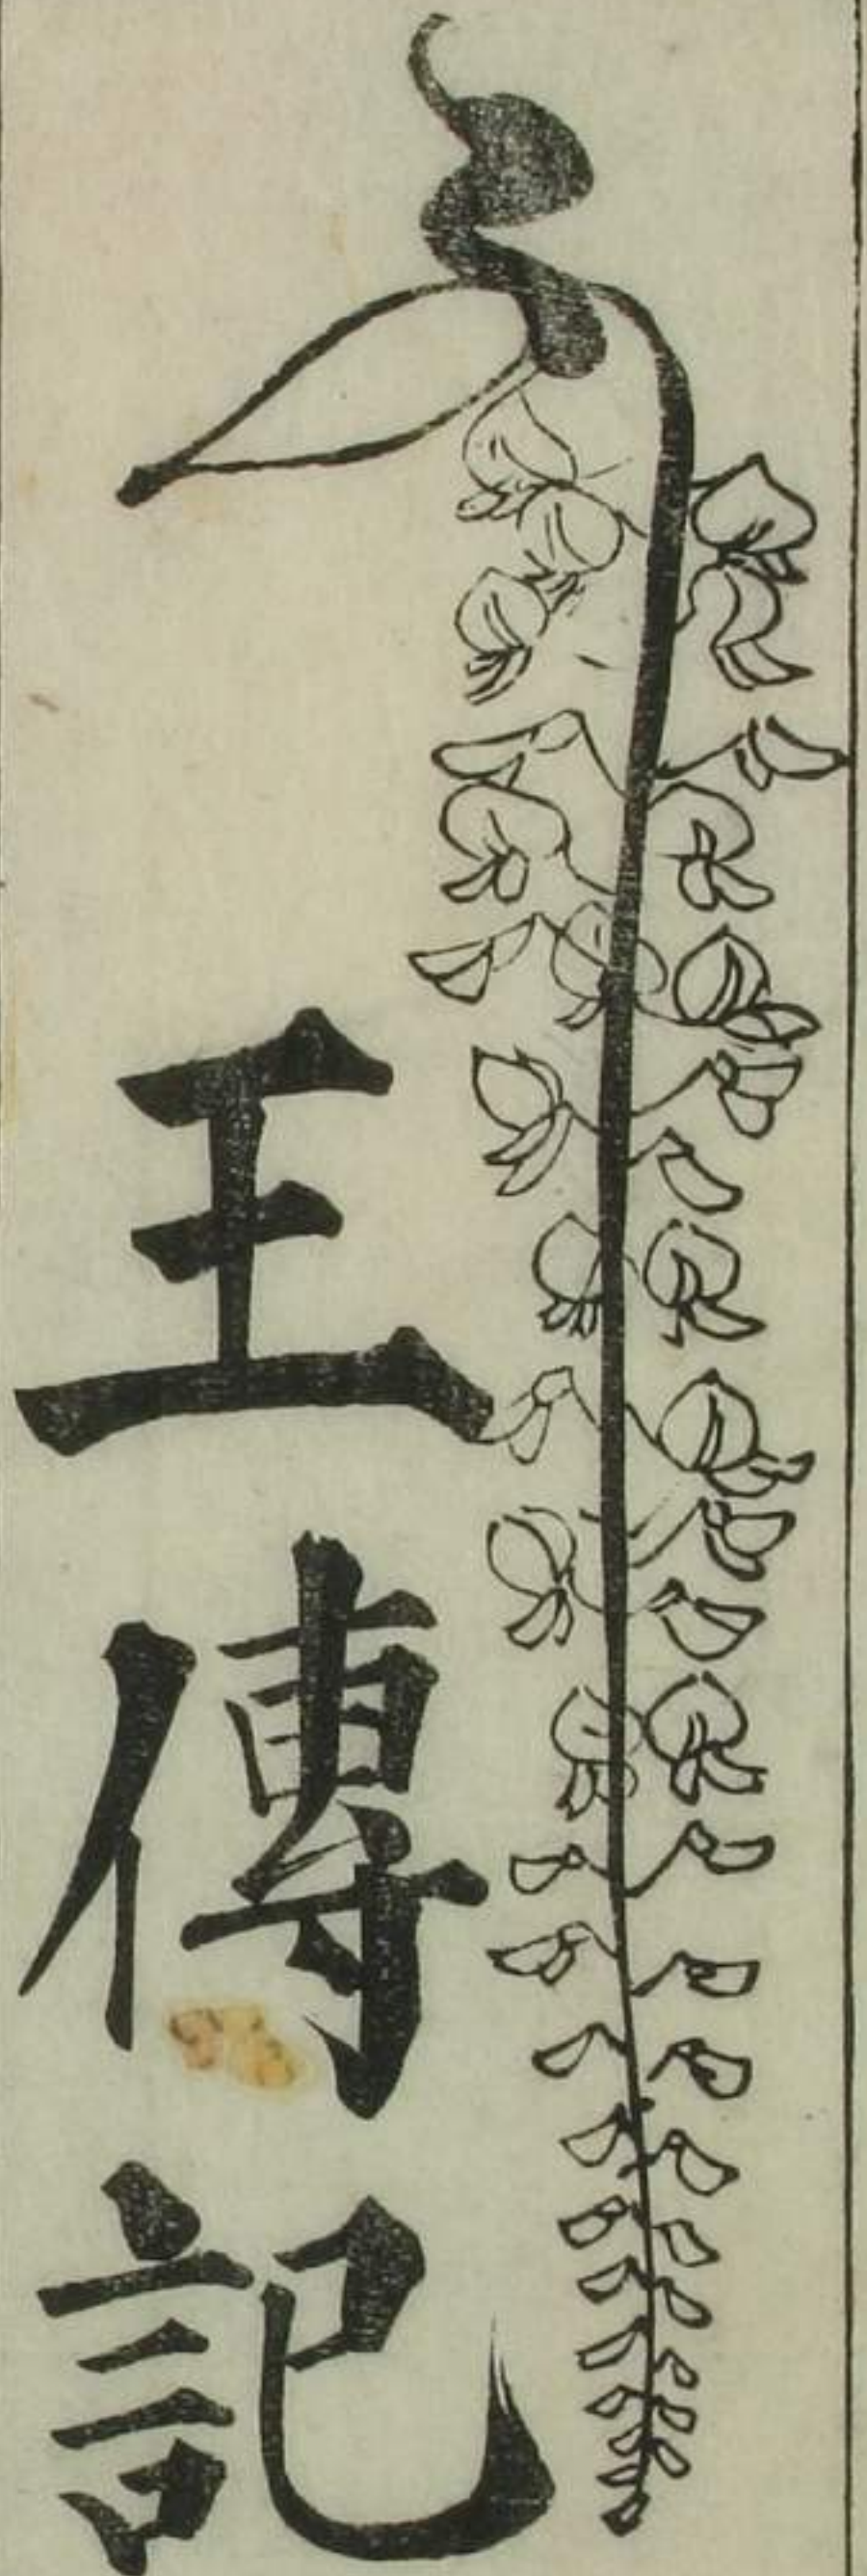 王傳記